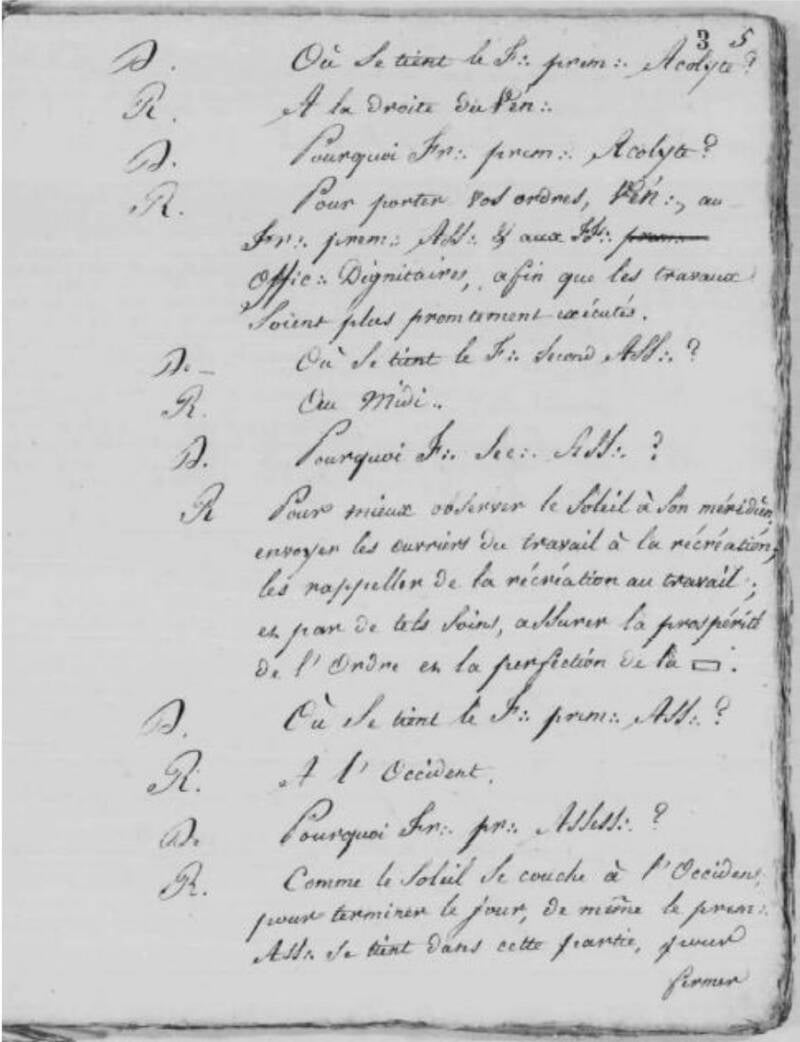 3 5
D. Où se tient le F∴ prem∴ Acolyte?
R. A la droite du Vén∴
D. Pourquoi Fr∴ prem∴ Acolyte?
R. Pour porter vos ordres, Vén∴, au
Fr∴ prem∴ Ass∴ & aux FF∴ prem∴
offic∴ Dignitaires, afin que les travaux
soient plus promtement exécutés.
D. Où se tient le F∴ second Ass∴?
R. Au Midi.
D. Pourquoi F∴ Sec∴ Ass∴?
R Pour mieux observer le Soleil à son méridien,
envoyer les ouvriers du travail à la récréation,
les rappeller de la récréation au travail;
et par de tels soins, assurer la prospérité
de l'Ordre et la perfection de la ▭.
D. Où se tient le F∴ prem∴ Ass∴?
R. A l'Occident.
D. Pourquoi Fr∴ pr∴ Assess∴?
R. Comme le Soleil se couche à l'Occident
pour terminer le jour, de même le prem∴
Ass∴ se tient dans cette partie, pour
fermer